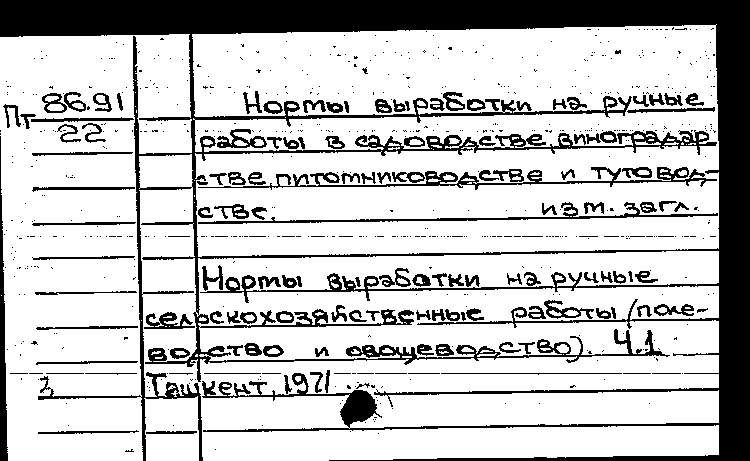 Пт 86.91
22
Нормы выработки на ручные
работы в садоводстве, виноградар
стве, питомниководстве и тутовод-
стве. изм. загл.
Нормы выработки на ручные
сельскохозяйственные работы (поле-
водство и овощеводство). Ч.1
Ташкент, 1971